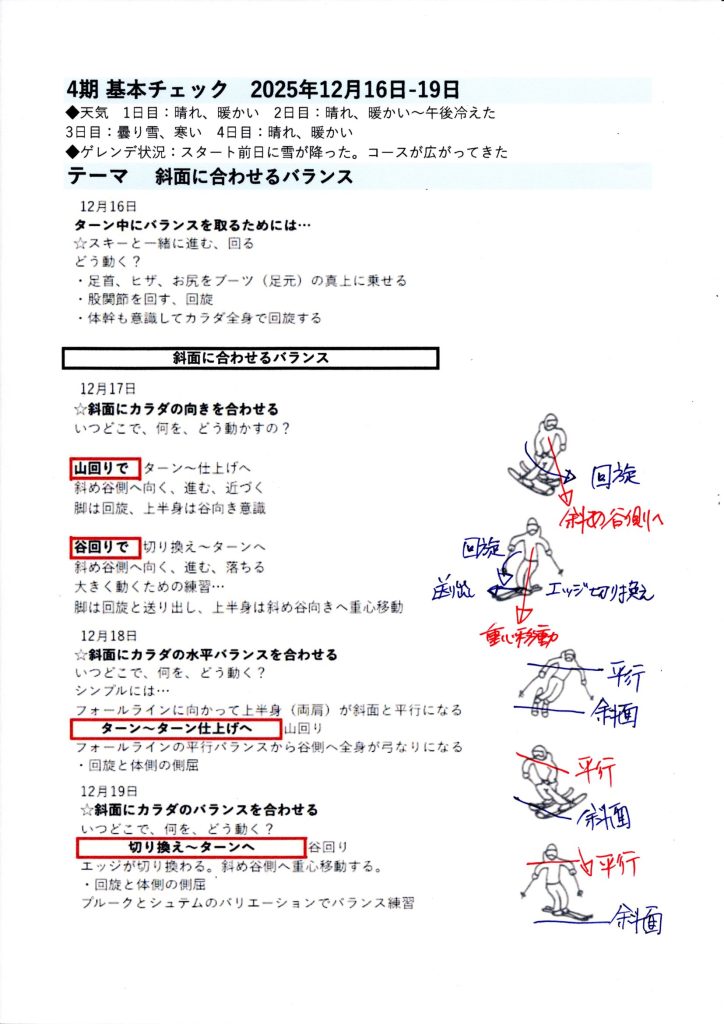 4期 基本チェック　2025年12月16日-19日
◆天気　1日目：晴れ、暖かい　2日目：晴れ、暖かい～午後冷えた
3日目：曇り雪、寒い　4日目：晴れ、暖かい
◆ゲレンデ状況：スタート前日に雪が降った。コースが広がってきた
テーマ　斜面に合わせるバランス
12月16日
ターン中にバランスを取るためには…
☆スキーと一緒に進む、回る
どう動く？
・足首、ヒザ、お尻をブーツ（足元）の真上に乗せる
・股関節を回す、回旋
・体幹も意識してカラダ全身で回旋する
斜面に合わせるバランス
12月17日
☆斜面にカラダの向きを合わせる
いつどこで、何を、どう動かすの？
山回りで　ターン～仕上げへ
斜め谷側へ向く、進む、近づく
脚は回旋、上半身は谷向き意識
回旋
斜め谷側へ
谷回りで　切り換え～ターンへ
斜め谷側へ向く、進む、落ちる
大きく動くための練習…
脚は回旋と送り出し、上半身は斜め谷向きへ重心移動
回旋
送り出し
エッジ切り換え
重心移動
12月18日
☆斜面にカラダの水平バランスを合わせる
いつどこで、何を、どう動く？
シンプルには…
フォールラインに向かって上半身（両肩）が斜面と平行になる
平行
斜面
ターン～ターン仕上げへ　山回り
フォールラインの平行バランスから谷側へ全身が弓なりになる
・回旋と体側の側屈
平行
斜面
12月19日
☆斜面にカラダのバランスを合わせる
いつどこで、何を、どう動く？
切り換え～ターンへ　谷回り
エッジが切り換わる。斜め谷側へ重心移動する。
・回旋と体側の側屈
プルークとシュテムのバリエーションでバランス練習
平行
斜面